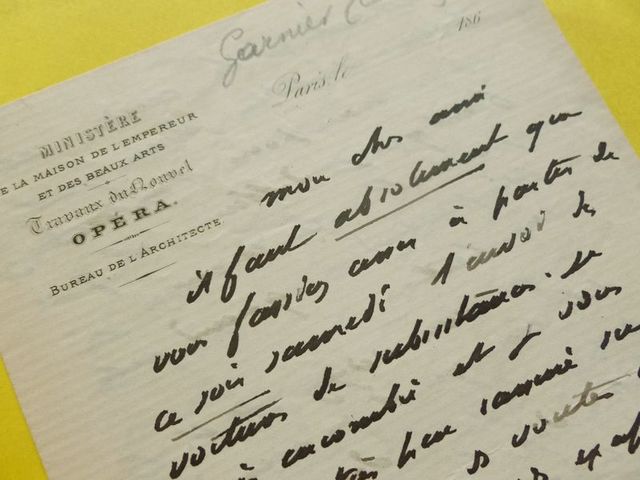 Garnier
186
Paris, le
MINISTÈRE
DE LA MAISON DE L'EMPEREUR
ET DES BEAUX ARTS
Travaux du Nouvel
OPÉRA.
BUREAU DE L'ARCHITECTE
mon cher ami
il faut absolument que
vous fassiez cesser à partir de
ce soir samedi l'envoi des
voitures de substances. Je
encombré et je vous
par
voutes